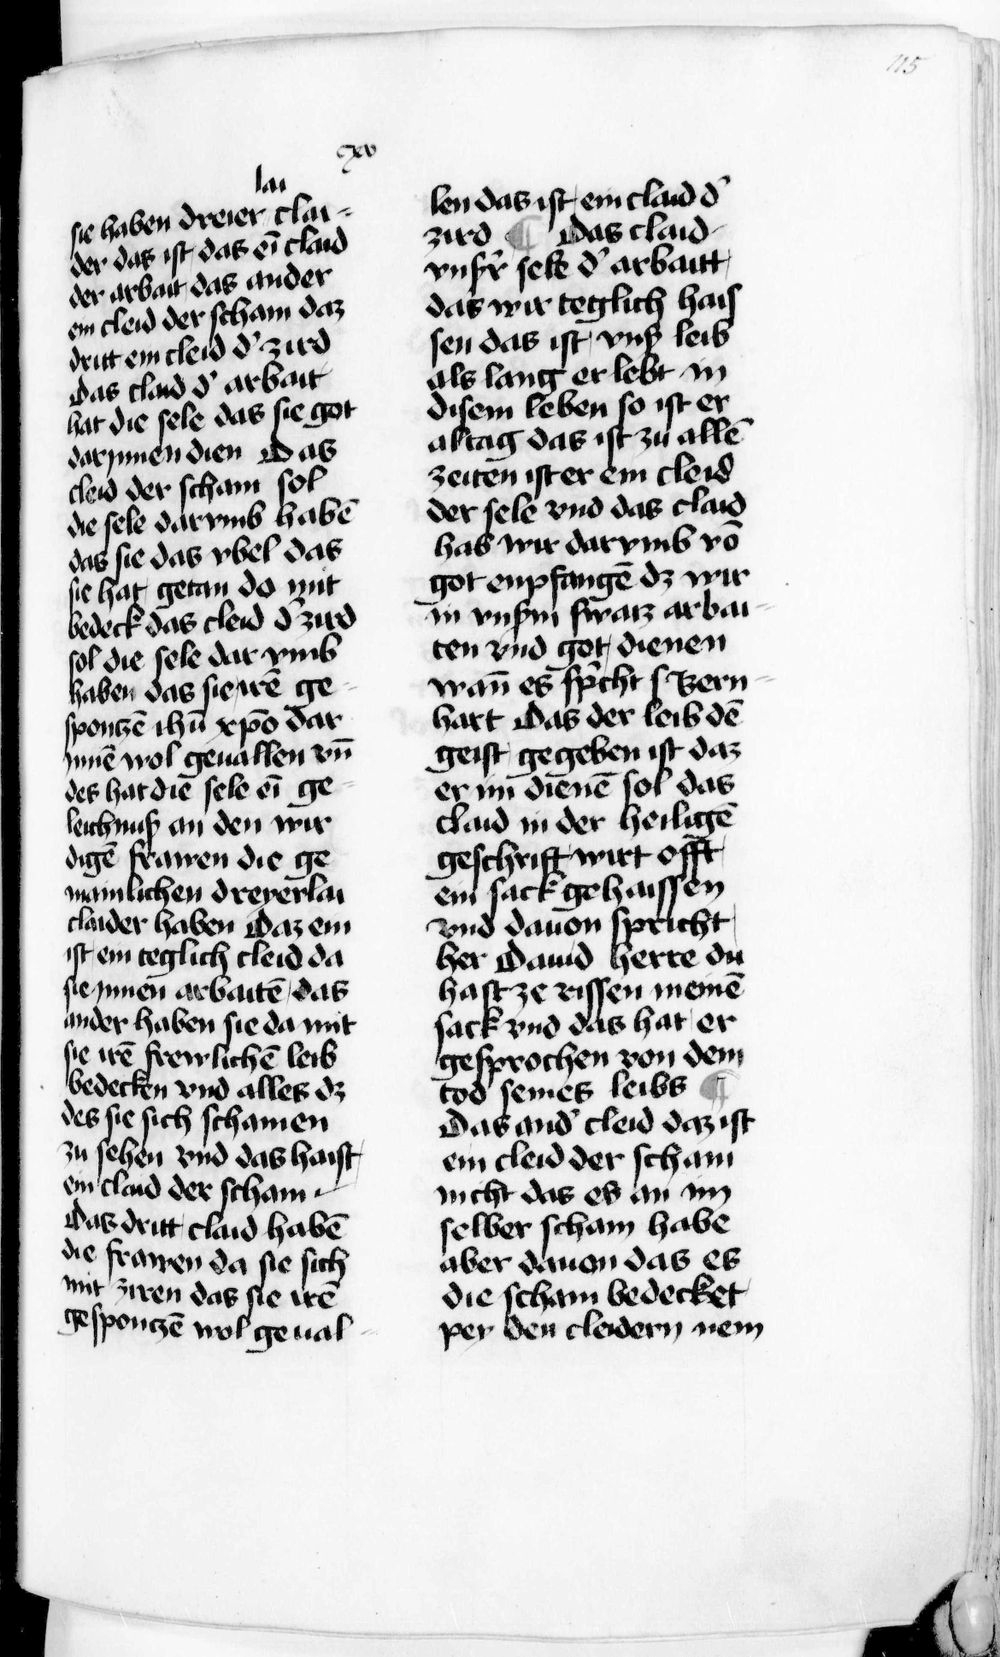 115
cxv
lai
sie haben dreier clai-
der das ist das eī claid
der arbait das ander
ein cleid der scham daz
dritt ein cleid d' zird
Das claid d' arbait
hat die sele das sie got
darynnen dien Das
cleid der scham sol
die sele darvmb habē
das sie das vbel das
sie hat getan do mit
bedeck das cleid d' zird
sol die sele dar vmb
haben das sie irē ge-
sponczē ihū xp̄o dar
ynnē wol geuallen vn̄
des hat die sele eī ge-
leichnuß an den wir
digē frawen die ge
mainlichen dreyerlai
claider haben Daz ein
ist ein teglich cleid da
sie ynnen arbaitē das
ander haben sie da mit
sie irē frewlichē leib
bedecken vnd alles dz
des sie sich schamen
zu sehen vnd das haist
ein claid der scham
Das dritt claid habē
die frawen da sie sich
mit ziren das sie irē
gesponczē wol geual-
len das ist ein claid d'
zird ¶ Das claid
vnß'r sele d' arbaitt
das wir teglich hais
sen das ist vnß' leib
als lang er lebt in
disem leben so ist er
altag das ist zu allē
zeiten ist er ein cleid
der sele vnd das claid
hab wir darvmb vō
got enpfangē dz wir
in vnß'm swaiz arbai-
ten vnd got dienen
wan̄ es sp'cht s Bern-
hart Das der leib dē
geist gegeben ist daz
er im dienē sol das
claid in der heiligē
geschrift wirt offt
ein sack gehaissen
vnd dauon spricht
her Dauid herre du
hast ze rissen meinē
sack vnd das hat er
gesprochen von dem
tod seines leibs ¶
Das and' cleid daz ist
ein cleid der scham
nicht das es an im
selber scham habe
aber dauon das es
die scham bedecket
pey den cleidern nem